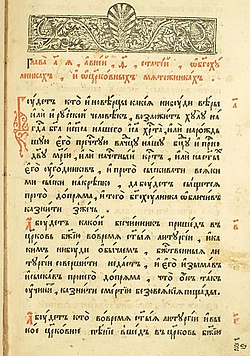 Глава а҃, а в не́й ѳ҃ статей ѡ бг҃оху
лникахъ и ѡ церковныхъ мятежникахъ.
Бу́детъ кто̀ иновѣрцы какїя нибуди вѣры
или и рꙋской человѣкъ, возложитъ хꙋлꙋ на
гд҃а бг҃а и сп҃са нашего іс҃а хрт҃а, или нарождь
шꙋю его пречт҃ꙋю влчцꙋ нашꙋ бц҃ꙋ и прно
дв҃ꙋ мр҃їю, или начтный крт҃ъ, или настыхъ
его ꙋгодниковъ, и прото сыскивати всяки
ми сыски накрѣпко. да бꙋдетъ сыщется
прото допряма, и того бг҃охꙋлника ѡбличивъ
казнити зжечь.
А бꙋдетъ какой бесчинникъ пришедъ въ
црк҃овь бж҃їю вовремя ст҃ыя литꙋргїи, и ка
кимъ нибꙋди ѡбычаемъ, бж҃ественныя ли
тꙋргїи совершити недастъ, и его изымавъ
и сыскавъ пронего допряма, что ѡнъ такъ
ꙋчинитъ, казнити смертїю безовсякїя пощады.
А бꙋдетъ кто вовремя ст҃ыя литꙋргїи и вы
ное црк҃овное пѣнїе вшедъ въ црк҃овь бж҃їю